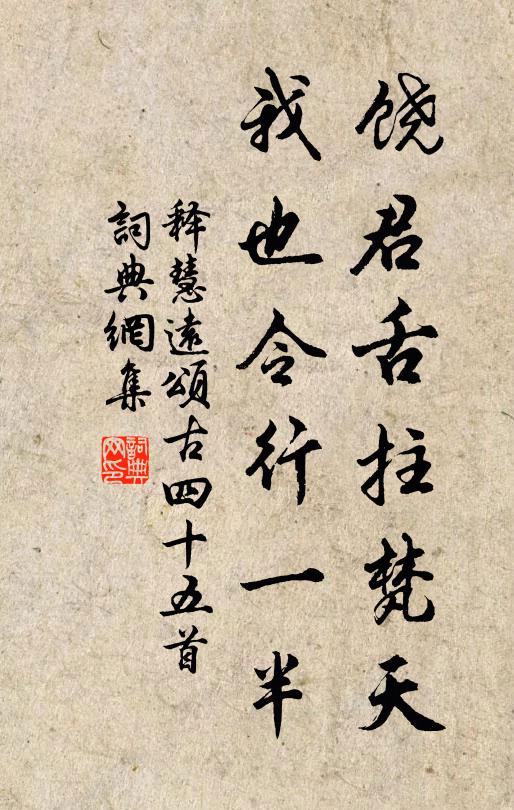 饶君舌拄梵天
我也令行一半
释慧遠頌古四十五首
詞典網集
詞典网印